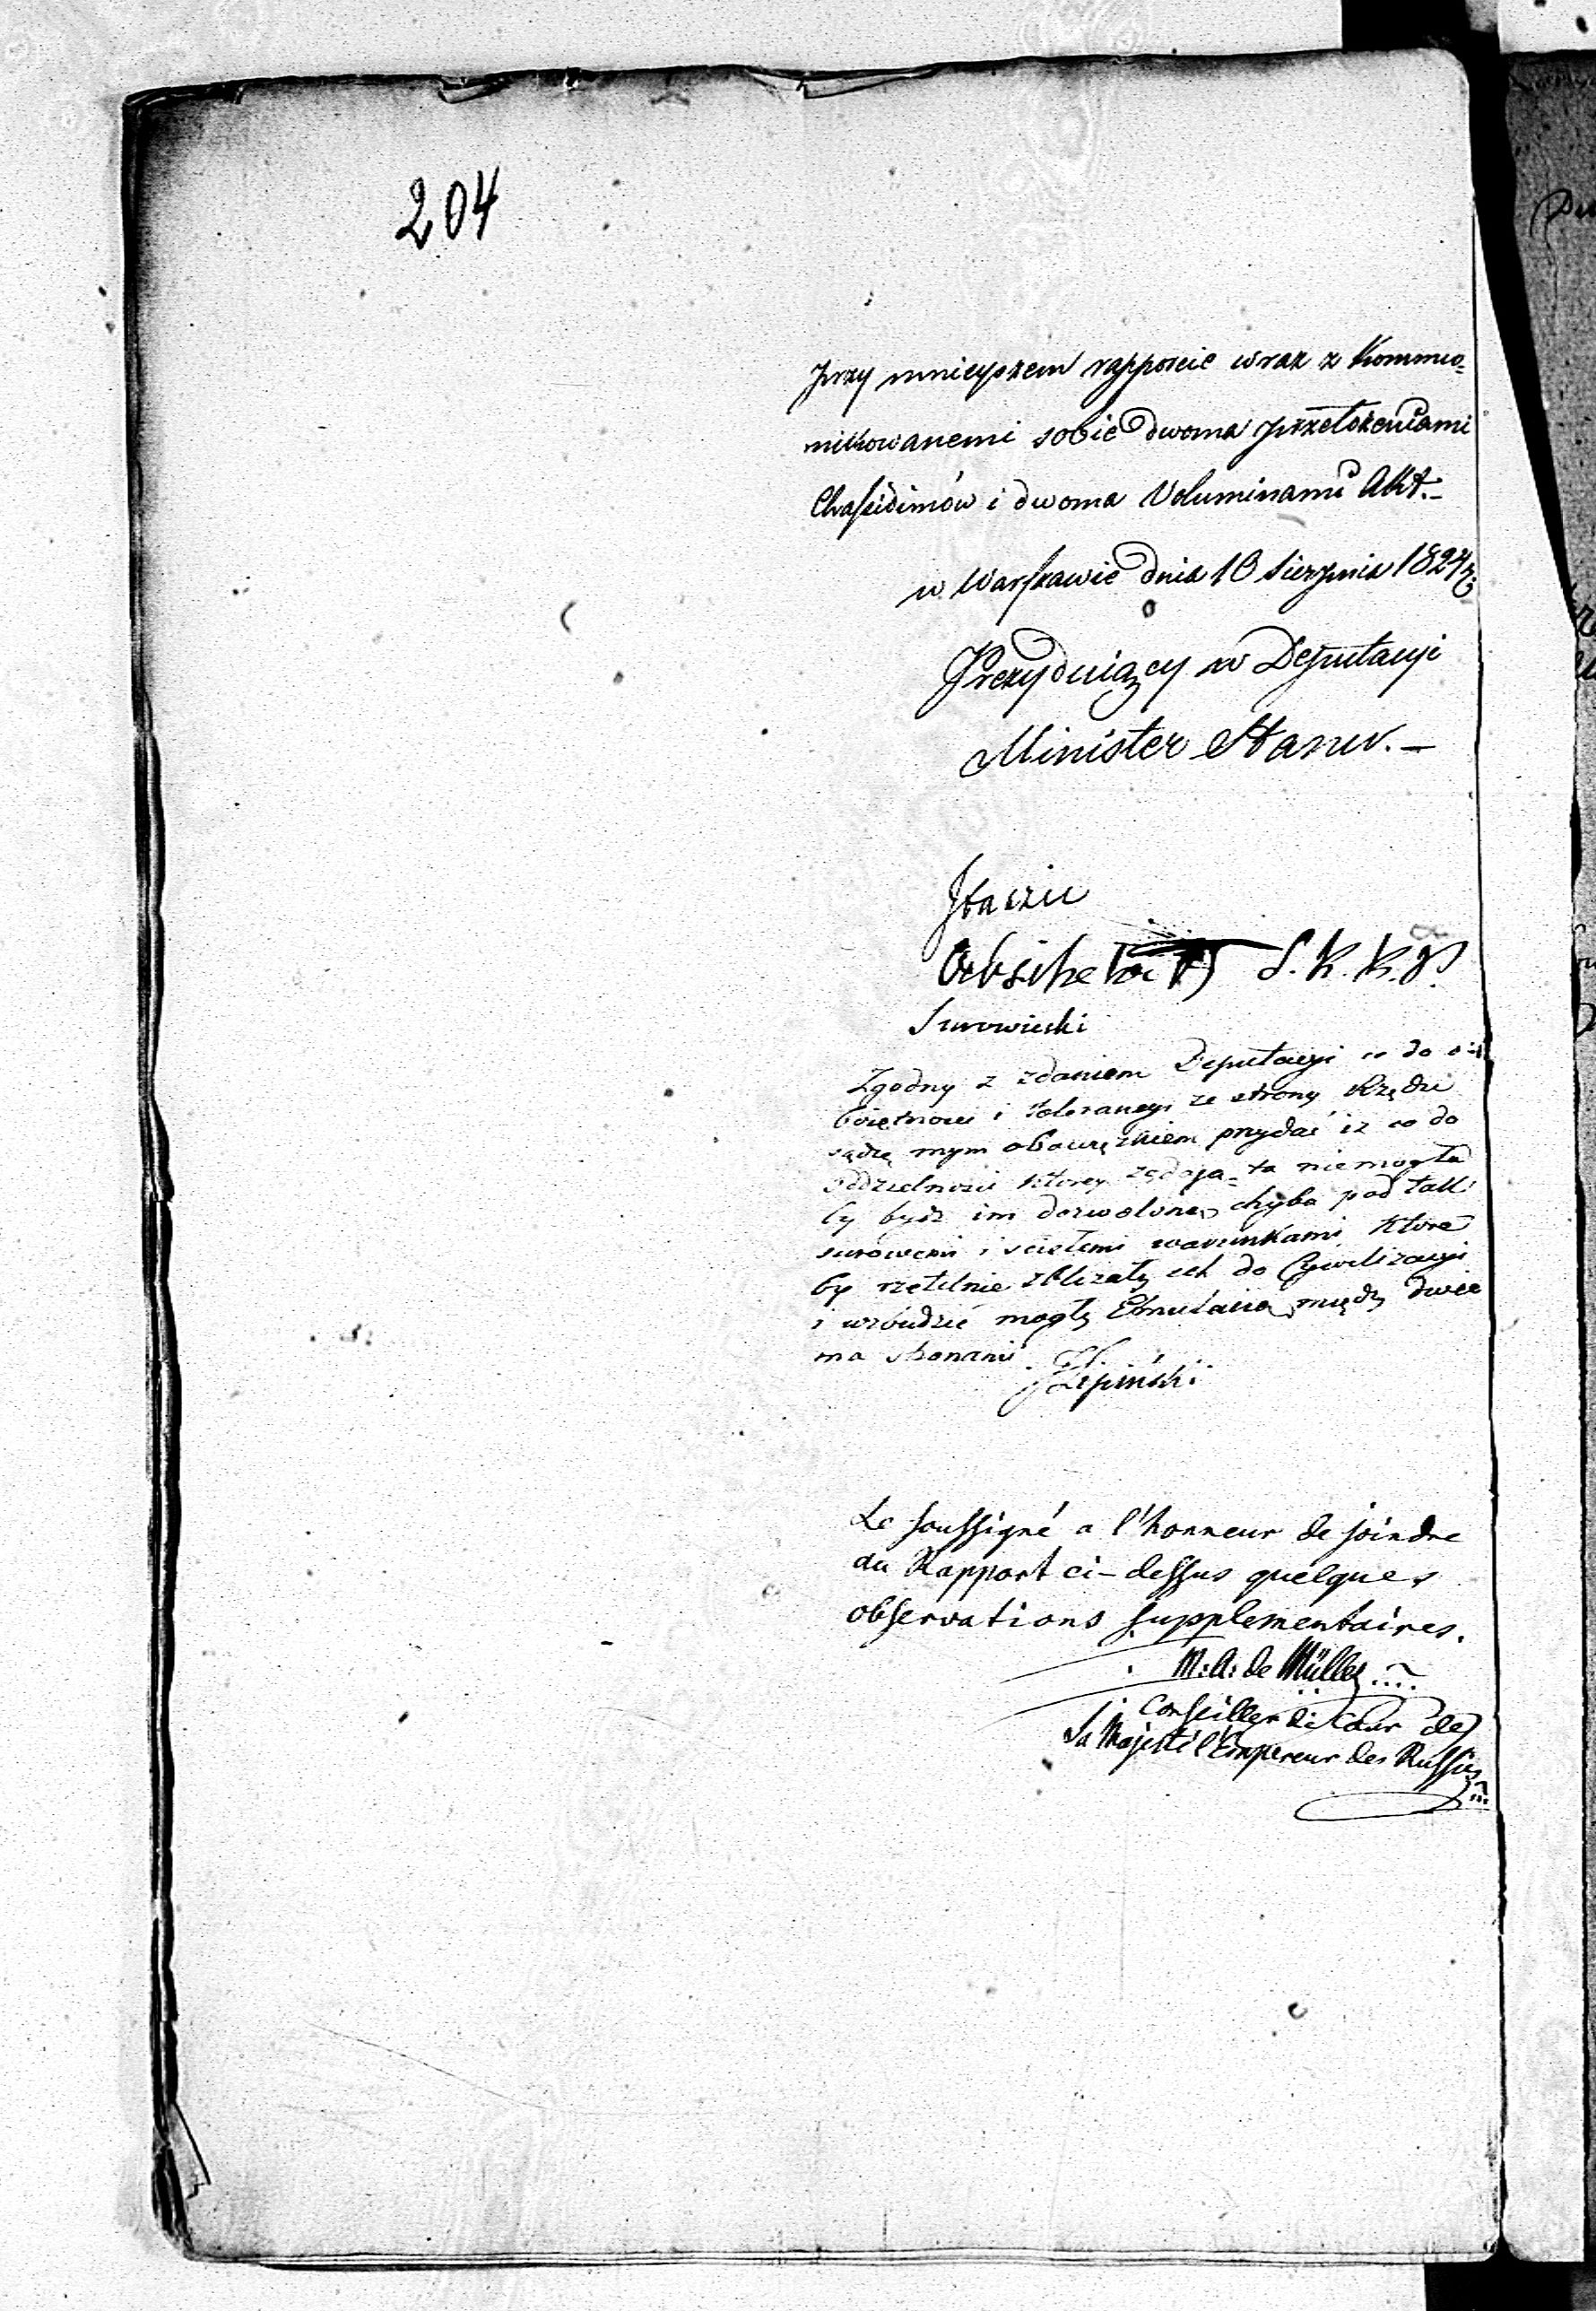 204
przy ninieyszem rapporcie wraz z Kommu=
nikowanemi sobie dwoma przełożeniami
Chassidimów i dwoma Voluminami Akt.-
w Warszawie dnia 10 Sierpnia 1824 r.
Prezyduiący w Deputacyi
Minister Stanu. -
Staszic
S. K. K. P.
Surowiecki
Zgodny z zdaniem Deputacyi co do
i tolerancyi ze strony Rządu
sądzę mym obowiązkiem przydać iż co do
oddzielności którey żądaią - ta niemogła
by bydz im dozwoloną chyba pod tak
surowemi i scisłemi warunkami które
by rzetelnie zbliżały ich do Cywilizacyi
i wzbudzić mogły Emulacią między dwie
ma stronami.
Lipiński
Le soussigné a l'honneur de joindre
au Rapport ci-dessus quelques
observations supplementaires.
M. A. de Müller
Conseiller de Cour de
Sa Majesté l'Empereur des Russies